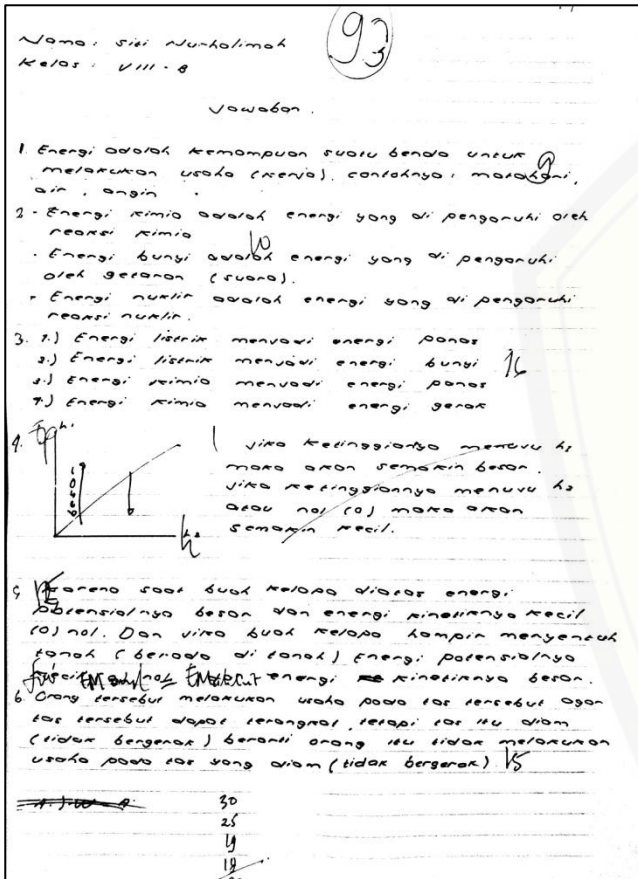 Nama : Siti Nurholimah
93
Kelas : VIII - B
Jawaban.
1. Energi adalah kemampuan suatu benda untuk 9
melakukan usaha (kerja). contohnya : matahari,
air, angin.
2. - Energi kimia adalah energi yang di pengaruhi oleh
reaksi kimia 10
- Energi bunyi adalah energi yang di pengaruhi
oleh getaran (suara).
- Energi nuklir adalah energi yang di pengaruhi
reaksi nuklir.
3. 1.) Energi listrik menjadi energi panas
2.) Energi listrik menjadi energi bunyi 16
3.) Energi kimia menjadi energi panas
4.) Energi kimia menjadi energi gerak
4. h1 jika ketinggiannya menuju h1
maka akan semakin besar.
jika ketinggiannya menuju h2
atau nol (0) maka akan
semakin kecil.
h2
5. Karena saat buah kelapa diatas energi
potensialnya besar dan energi kinetiknya kecil
(0) nol. Dan jika buah kelapa hampir menyentuh
tanah (berada di tanah) Energi potensialnya
energi kinetiknya besar.
6. Orang tersebut melakukan usaha pada tas tersebut agar
tas tersebut dapat terangkat, tetapi tas itu diam
(tidak bergerak) berarti orang itu tidak melakukan
usaha pada tas yang diam (tidak bergerak) 15
30
25
19
18